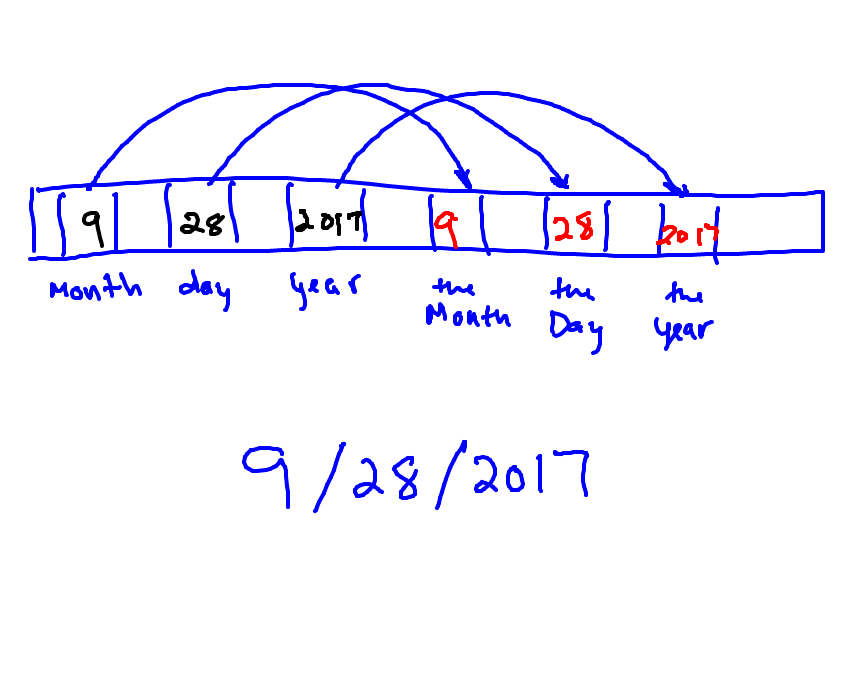 9 28 2017 9 28 2017
Month day year the the the
Month Day year
9/28/2017